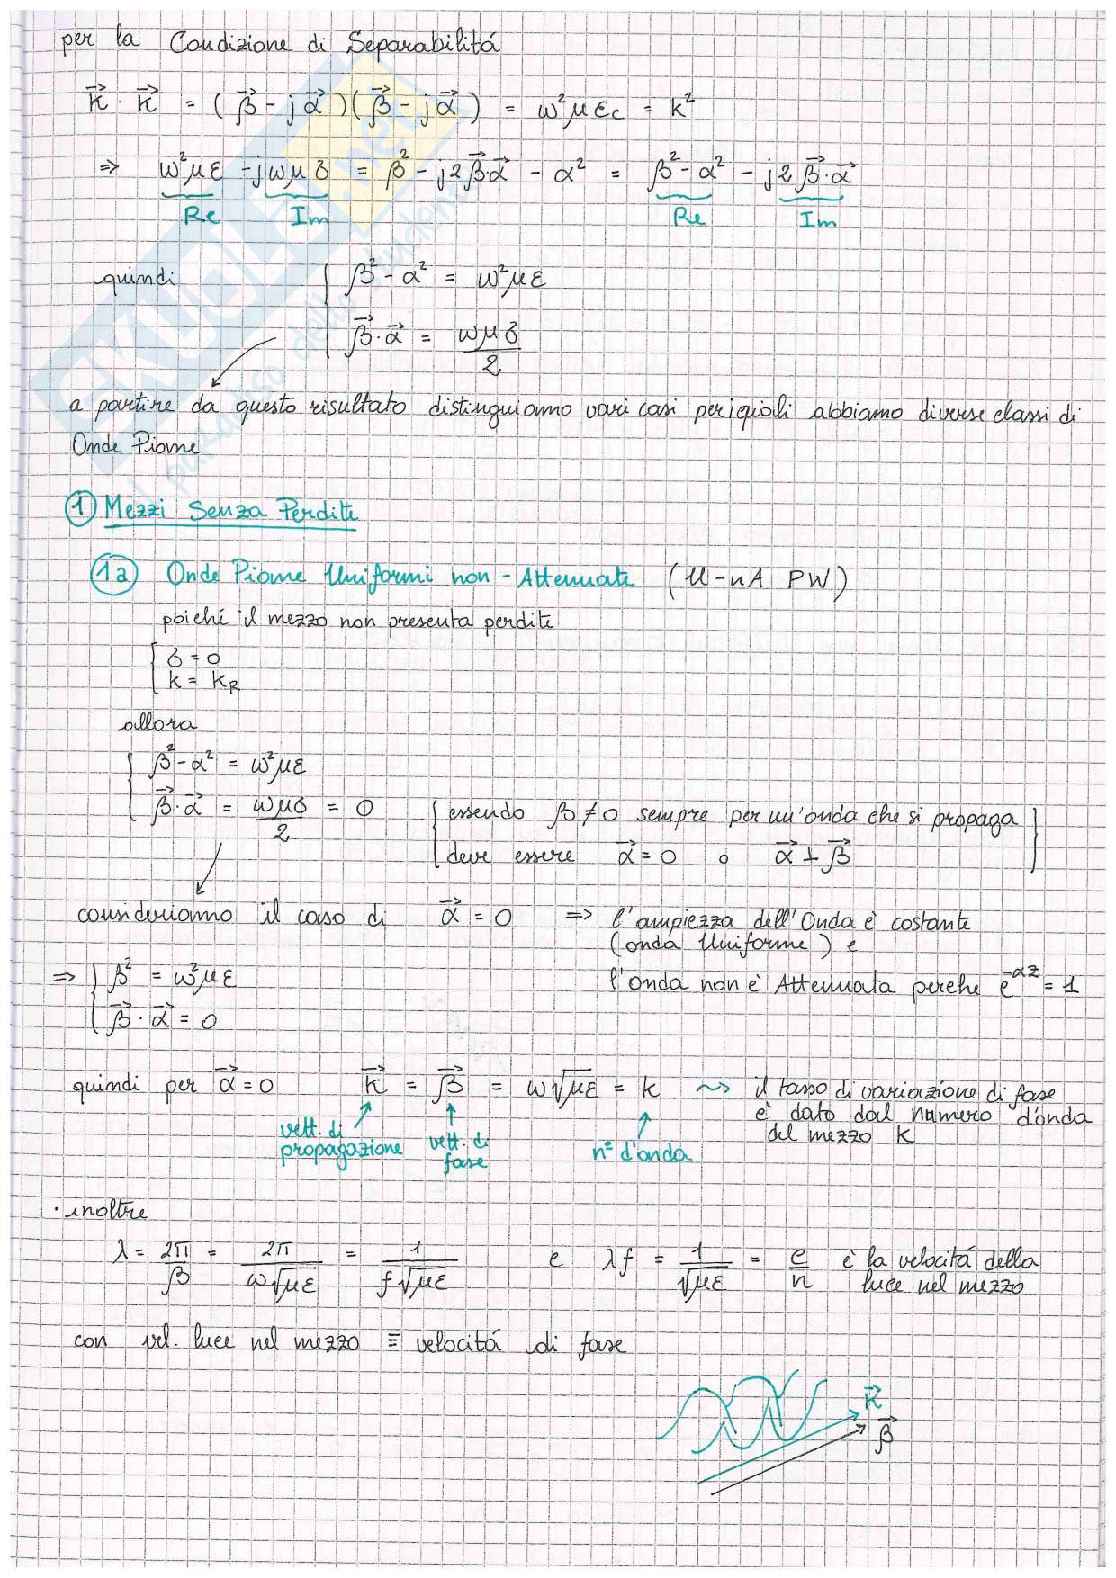 per la Condizione di Separabilitá
k⃗ · k⃗ = (β⃗ - jα⃗)(β⃗ - jα⃗) = ω²μεc = k²
=> ω²με - jωμδ = β² - j2β⃗·α⃗ - α² = β² - α² - j2β⃗·α⃗
Re Im Re Im
quindi { β² - α² = ω²με
β⃗·α⃗ = ωμδ/2
a partire da questo risultato distinguiamo vari casi per i quali abbiamo diverse classi di
Onde Piane
① Mezzi Senza Perdite
1a Onde Piane Uniformi non-Attenuate (U-nA PW)
poiché il mezzo non presenta perdite
{ δ = 0
k = kR
allora
{ β² - α² = ω²με
β⃗·α⃗ = ωμδ/2 = 0 { essendo β ≠ 0 sempre per un'onda che si propaga
deve essere α⃗ = 0 o α⃗ ⊥ β⃗ }
consideriamo il caso di α⃗ = 0 => l'ampiezza dell'Onda è costante
(onda Uniforme) e
=> { β² = ω²με l'onda non è Attenuata perche e^-αz = 1
β⃗·α⃗ = 0
quindi per α⃗ = 0 k⃗ = β⃗ = ω√με = k ~> il tasso di variazione di fase
è dato dal numero d'onda
del mezzo k
vett. di propagazione
vett. di fase
n° d'onda
· inoltre
λ = 2π/β = 2π/ω√με = 1/f√με e λf = 1/√με = c/n è la velocitá della
luce nel mezzo
con vel. luce nel mezzo ≡ velocitá di fase
k⃗
β⃗